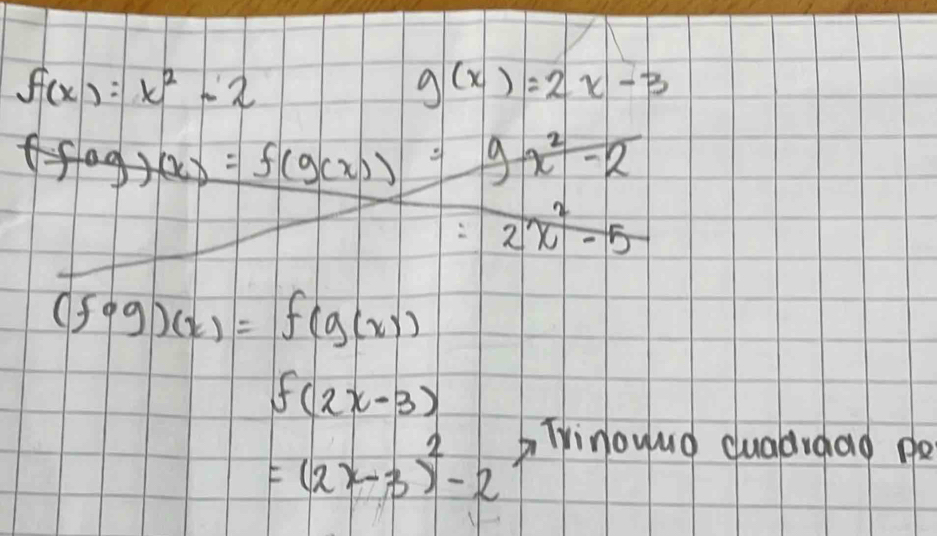 f(x) = x² - 2 g(x) = 2x - 3
(fog)(x) = f(g(x)) = gx² - 2
= 2x² - 5
(fog)(x) = f(g(x))
f(2x-3)
= (2x-3)² - 2 → Trinomio cuadrado pe